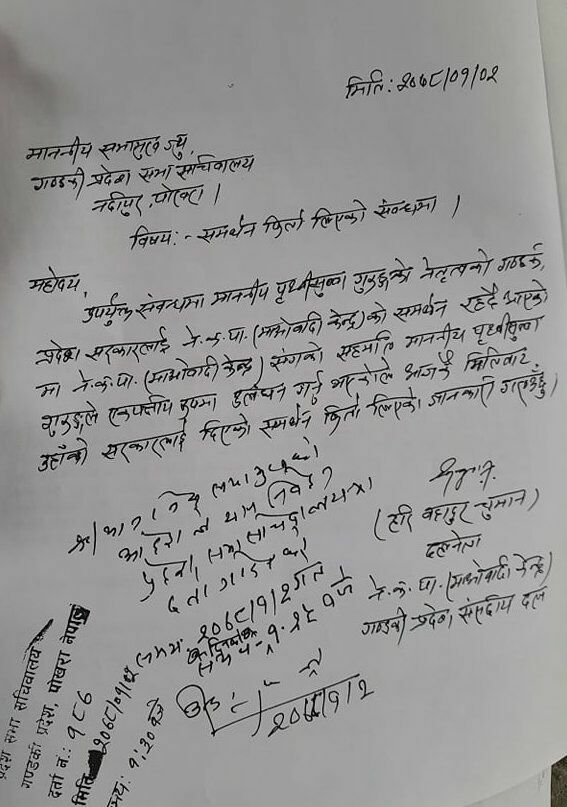 मिति: २०७८/०१/०२
माननीय सभामुख ज्यु,
गण्डकी प्रदेश सभा सचिवालय
नदीपुर, पोखरा ।
विषय:- समर्थन फिर्ता लिएको संवन्धमा ।
महोदय,
उपर्युक्त संवन्धमा माननीय पृथ्वीसुब्बा गुरुङ्गको नेतृत्वको गण्डकी
प्रदेश सरकारलाई ने.क.पा.(माओवादी केन्द्र)को समर्थन रहदै आएको
मा ने.क.पा.(माओवादी केन्द्र) संगको सहमति माननीय पृथ्वीसुब्बा
गुरुङ्गले एकपक्षीय रुपमा उलंघन गर्नु भएकोले आजकै मितिवाट
उहाँको सरकारलाई दिएको समर्थन फिर्ता लिएको जानकारी गराउँछु।
(हरि वहादुर चुमान)
दलनेता
ने.क.पा.(माओवादी केन्द्र)
गण्डकी प्रदेश संसदीय दल
प्रदेश सभा सचिवालयमा
दर्ता
समय २०७८/१/२ गते
२०७८/१/२
प्रदेश सभा सचिवालय
गण्डकी प्रदेश, पोखरा नेपाल
दर्ता नं.: १८६
मिति २०७८/०१/०२
समय: १:२० बजे